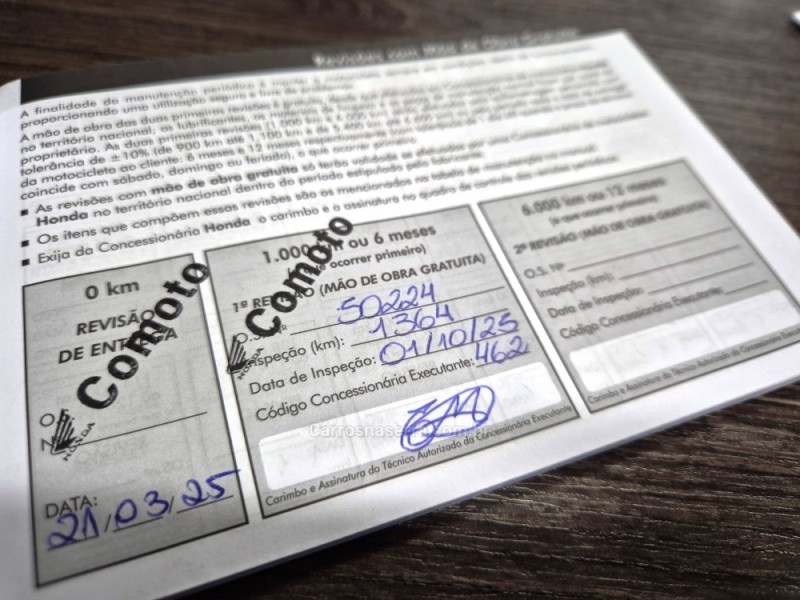 Revisões com Mão de Obra Gratuita
A finalidade da manutenção periódica é
proporcionando uma utilização segura e livre de problemas.
A mão de obra das duas primeiras revisões é gratuita,
no território nacional; os lubrificantes, os materiais de
proprietário. As duas primeiras revisões (1.000 km e 6.000 km)
tolerância de ±10% (de 900 km até 1.100 km e de 5.400 km até
da motocicleta ao cliente: 6 meses e 12 meses respectivamente
coincide com sábado, domingo ou feriado), o que ocorrer primeiro.
▪ As revisões com mão de obra gratuita só terão validade se executadas por
Honda no território nacional dentro do período estipulado pelo fabricante.
▪ Os itens que compõem essas revisões são os mencionados na tabela de manutenção
▪ Exija da Concessionária Honda o carimbo e a assinatura no quadro de controle das revisões
0 km
REVISÃO
DE ENTREGA
Comoto
HONDA
O.S.
N.
DATA:
21/03/25
1.000 km ou 6 meses
(o que ocorrer primeiro)
1ª REVISÃO (MÃO DE OBRA GRATUITA)
Comoto
HONDA
O.S. Nº 50224
Inspeção (km): 1364
Data de Inspeção: 01/10/25
Código Concessionária Executante: 462
Carimbo e Assinatura do Técnico Autorizado da Concessionária Executante
6.000 km ou 12 meses
(o que ocorrer primeiro)
2ª REVISÃO (MÃO DE OBRA GRATUITA)
O.S. Nº
Inspeção (km):
Data de Inspeção:
Código Concessionária Executante:
Carimbo e Assinatura do Técnico Autorizado da Concessionária Executante
Carrosnaserra.com.br